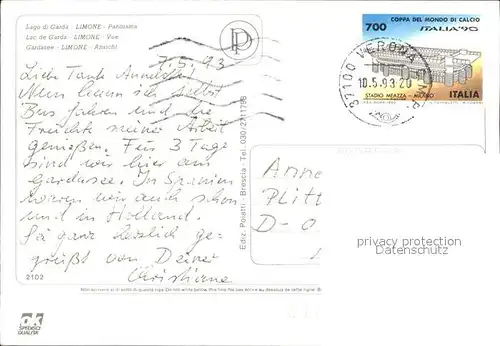 Lago di Garda - LIMONE - Panorama
Lac de Garda - LIMONE - Vue
Gardasee - LIMONE - Ansicht
7.5.93
Liebe Tante
Nun kann ich selbst
Bus fahren und die
Früchte meiner Arbeit
genießen. Für 3 Tage
sind wir hier am
Gardasee. In Spanien
waren wir auch schon
und in Holland.
Sei ganz herzlich ge-
grüßt von Deiner
Christiane
2102
Ediz. Poiatti - Brescia - Tel. 030/2711798
COPPA DEL MONDO DI CALCIO
700
ITALIA'90
STADIO MEAZZA - MILANO
ITALIA
37100 VERONA
10.5.93 20
Anne
Plitt
D-O
privacy protection
Datenschutz
AK
SPEDISCI
QUALITÀ